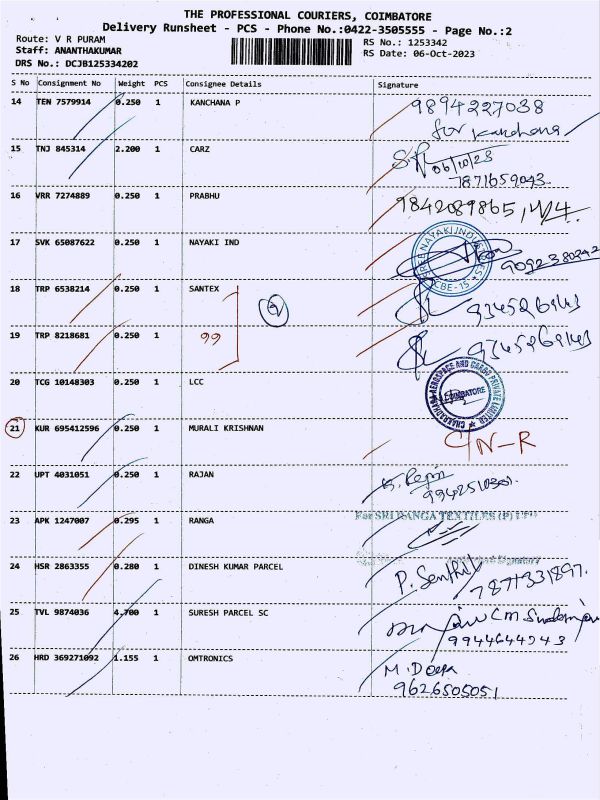 THE PROFESSIONAL COURIERS, COIMBATORE
Delivery Runsheet - PCS - Phone No.:0422-3505555 - Page No.:2
Route: V R PURAM
RS No.: 1253342
Staff: ANANTHAKUMAR
RS Date: 06-Oct-2023
DRS No.: DCJB125334202
S No Consignment No Weight PCS Consignee Details Signature
14 TEN 7579914 0.250 1 KANCHANA P 9894227038
for Kanchana
15 TNJ 845314 2.200 1 CARZ 06/10/23
7871659043
16 VRR 7274889 0.250 1 PRABHU 9842089865,
17 SVK 65087622 0.250 1 NAYAKI IND
SREE NAYAKI INDUSTRIES
CBE-15
18 TRP 6538214 0.250 1 SANTEX 9345269143
19 TRP 8218681 0.250 1 99 9345269143
20 TCG 10148303 0.250 1 LCC
CHAKRADHARA AEROSPACE AND CARGO PRIVATE LIMITED
COIMBATORE
21 KUR 695412596 0.250 1 MURALI KRISHNAN C/N-R
22 UPT 4031051 0.250 1 RAJAN
23 APK 1247007 0.295 1 RANGA For SRI RANGA TEXTILES (P) LTD
24 HSR 2863355 0.280 1 DINESH KUMAR PARCEL P. Senthil
7877331897.
25 TVL 9874036 4.700 1 SURESH PARCEL SC
26 HRD 369271092 1.155 1 OMTRONICS M. Deepa
9626505051